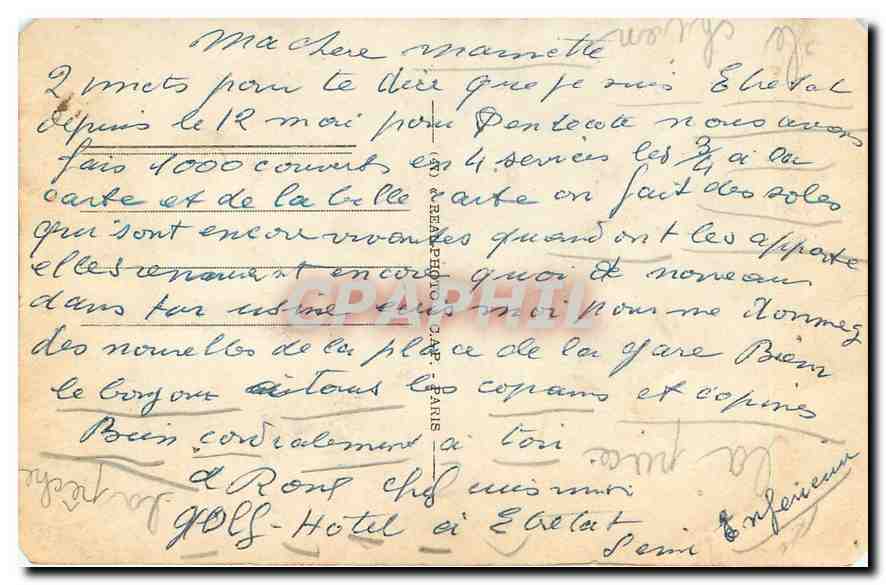 Ma chere mamette
2 mots pour te dire que je suis Etretat
depuis le 12 mai pour Pentecote nous avons
fais 1000 couverts en 4 services les 3/4 a la
carte et de la belle carte on fait des soles
qui sont encore vivantes quand ont les apporte
elles remuent encore quoi de nouveau
dans ton usine suis moi pour me donner
des nouvelles de la place de la gare Bien
le bonjour a tous les copains et copines
Bien cordialement a toi
chef
golf-Hotel a Etretat
Seine Inferieur
"REAL-PHOTO" C.A.P. - PARIS
CPAPHIL
le chien
la pêche
la